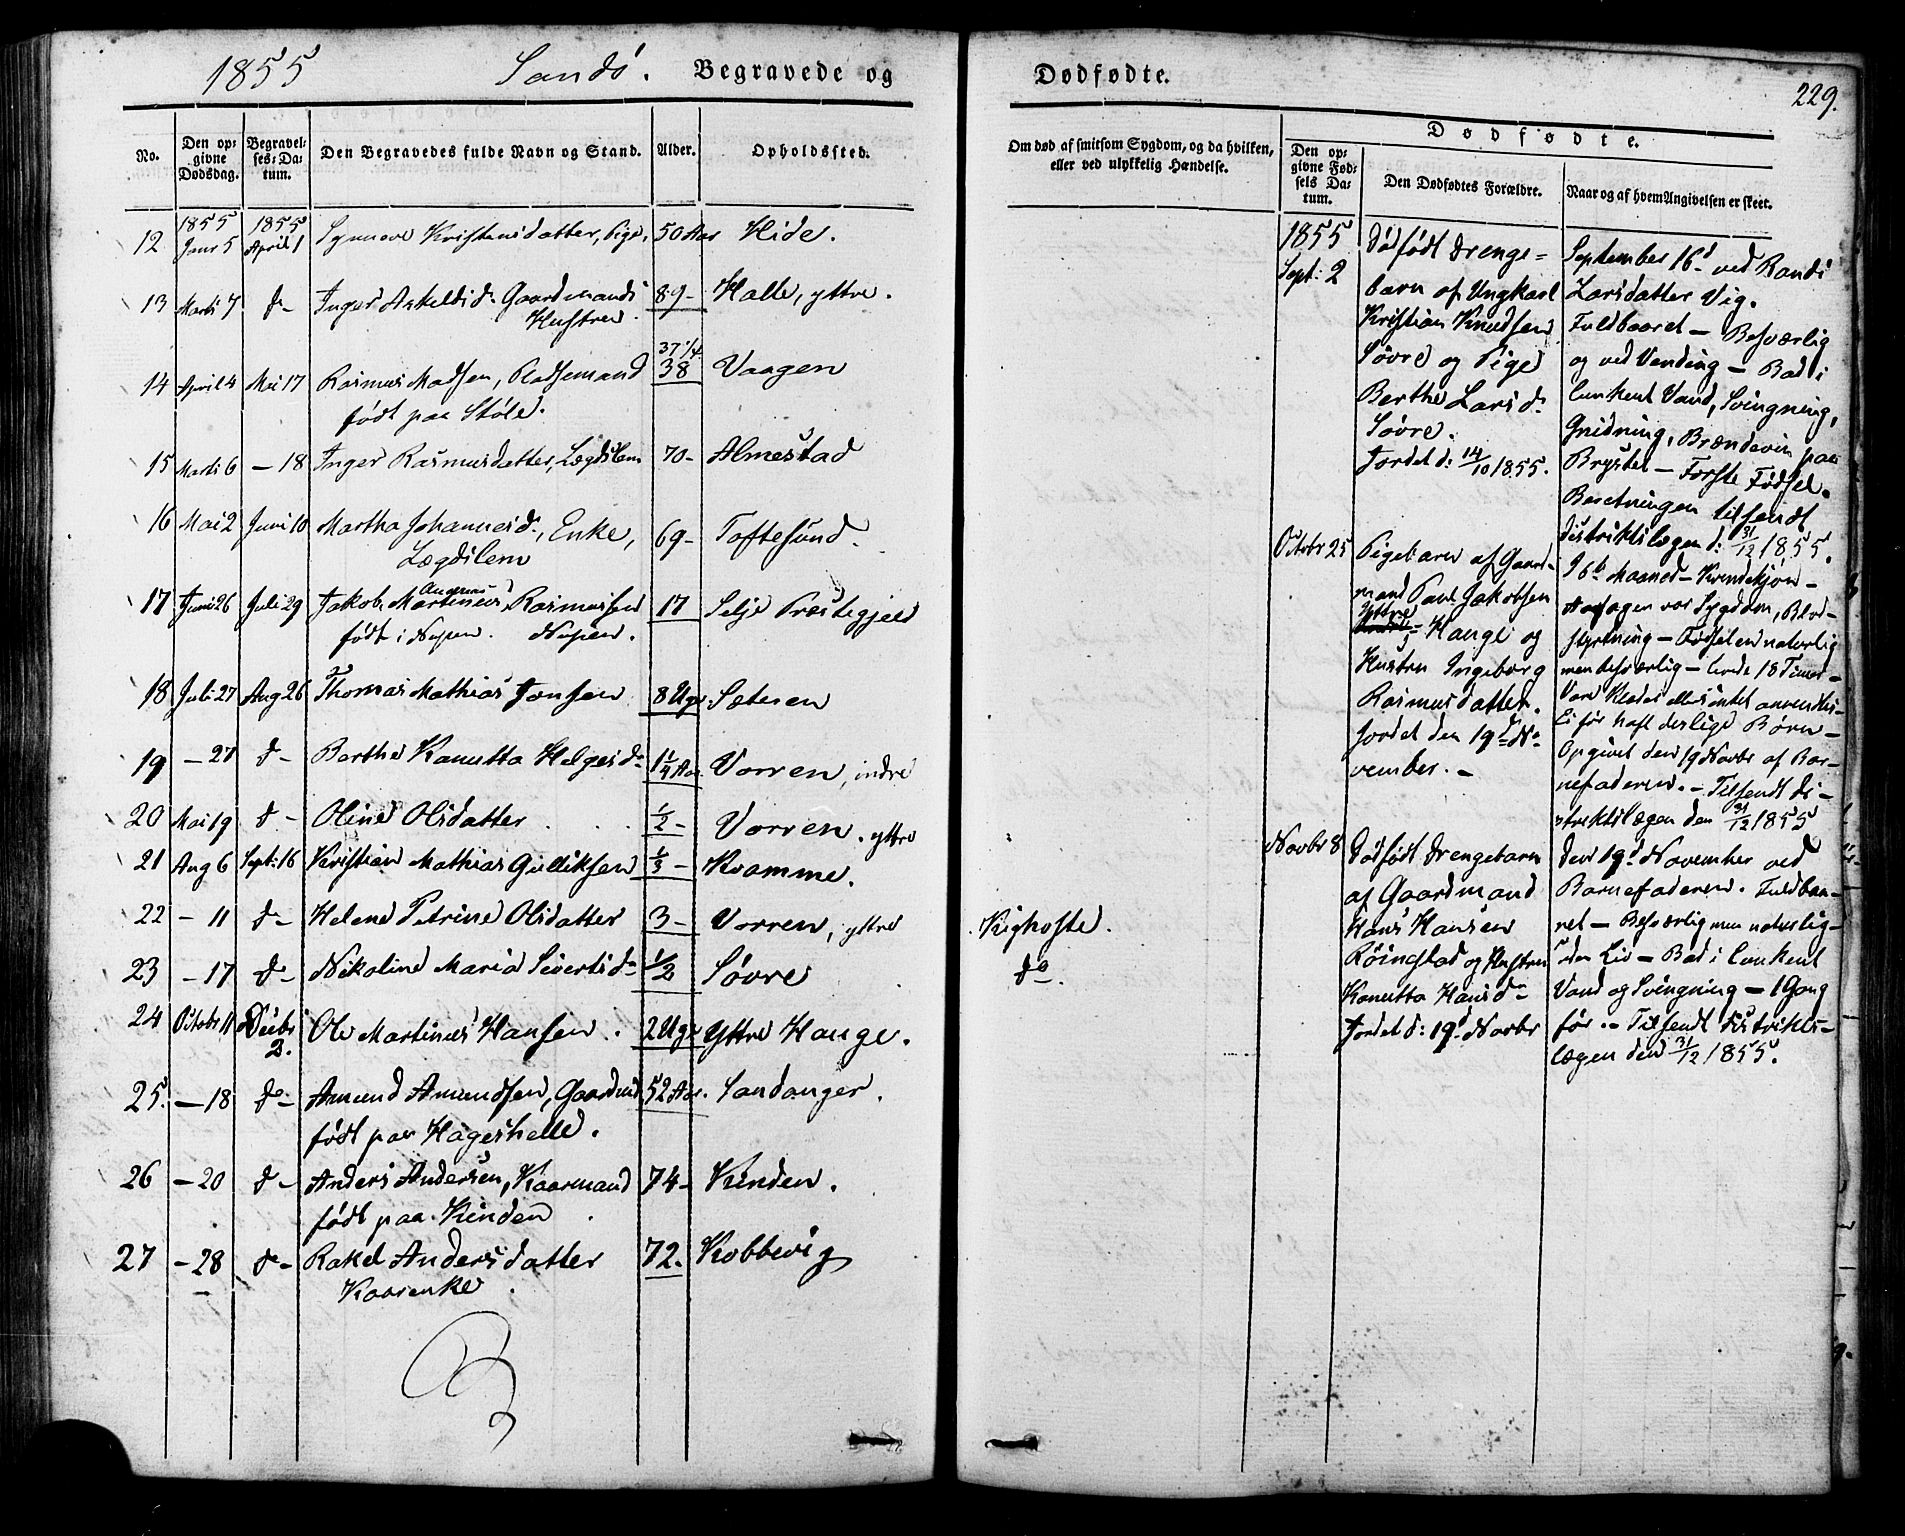 1855 Sandö. Begravede og
No.
Den op=
givne
Dødsdag.
Begravel=
ses=Da=
tum.
Den Begravedes fulde Navn og Stand.
Alder.
Opholdssted.
12 1855 Janr 5 1855 April 1 Synneve Kristensdatter, Pige, 50 Aar Hide.
13 Marti 7 d- Inger Askeldsd. Gaardmands 89- Halle, yttre.
Hustru.
37 1/4
14 April 4 Mai 17 Rasmus Madsen, Pladsemand 38 Vaagen
født paa Støle.
15 Marti 6 - 18 Inger Rasmusdatter, Lægdslem 70- Almestad
16 Mai 2 Juni 10 Martha Johannesd., Enke, 69- Toftesund.
Lægdslem
17 Juni 26 Juli 29 Jakob Martinus Rasmussen 17 Selje Præstegjeld
født i Nupen. Nupen.
18 Juli 27 Aug 26 Thomas Mathias Jonsen 8 Ugr. Sætren
19 - 27 d- Berthe Kanutta Helgesd. 1 1/4 Aar Vorren, indre
20 Mai 19 d- Oline Olsdatter 1/2 - Vorren, yttre
21 Aug 6 Sept: 16 Kristian Mathias Gulliksen 1/3 - Kvamme.
22 - 11 d- Helene Petrine Olsdatter 3- Vorren, yttre
23 - 17 d- Nikoline Maria Sivertsd. 1/2 Søvre
24 Octobr 11 Decbr 2. Ole Martinus Hansen. 2 Ugr Yttre Hauge.
25. - 18 d- Amund Amundsen, Gaardmd 52 Aar. Sandanger.
født paa Hageshelle.
26 - 20 d- Anders Andersen, Kaarmand 74- Kinden.
født paa Kinden
27 - 28 d- Rakel Andersdatter 72. Kobbevig
Kaarenke
Dødfødte.
229.
Om død af smitsom Sygdom, og da hvilken,
eller ved ulykkelig Hændelse.
Kighoste.
do.
Dødfødte.
Den op=
givne Fød=
sels Da=
tum.
Den Dødfødtes Forældre.
Naar og af hvem Angivelsen er skeet.
1855
Sept: 2
Dødfødt Drenge=
barn af Ungkarl
Kristian Knudsen
Søvre og Pige
Berthe Larsd.
Søvre.
Jordet d: 14/10 1855.
September 16d ved Randi
Larsdatter Vig.
Fuldbaaret - Besværlig
og ved Vending - Bad i
lunkent Vand, Svingning,
Gnidning, Brændeviin paa
Brystet - Første Fødsel.
Beretningen tilsendt
Distriktslægen d: 31/12 1855.
Octobr 25
Pigebarn af Gaard-
mand Paul Jakobsen
Yttre Hauge og
Hustru Ingeborg
Rasmusdatter.
Jordet den 19d No
vember. -
I 6te Maaned - Kvindekjøn -
Aarsagen var Sygdom, Blod-
styrtning - Fødselen naturlig
men besværlig - 18 Timer -
intet anvendtes -
Ei før haft deslige Børn -
Opgivet den 19 Novbr af Bar-
nefaderen. - Tilsendt Di-
striktslægen den 31/12 1855
Novbr 8
Dødfødt Drengebarn
af Gaardmand
Hans Hansen
Röingstad og Hustru
Kanutta Hansd.
Jordet d: 19d Novbr
den 19d November ved
Barnefaderen. Fuldbaa-
ret - Besværlig men naturlig -
uden Liv - Bad i lunkent
Vand og Svingning - 1 Gang
før. - Tilsendt Distrikts-
lægen den 31/12 1855.